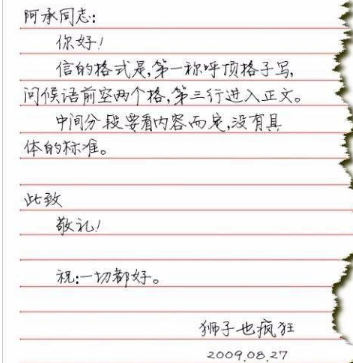 阿承同志:
你好!
信的格式是,第一称呼顶格子写,
问候语前空两个格,第三行进入正文。
中间分段要看内容而定,没有具
体的标准。
此致
敬礼!
祝:一切都好。
狮子也疯狂
2009,08,27